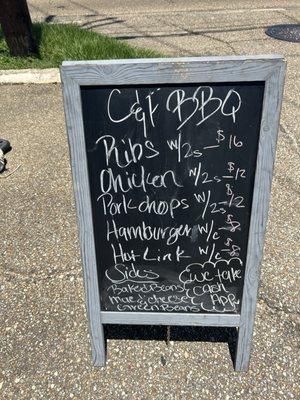 C&J BBQ
Ribs w/2s $16
Chicken w/2s $12
Porkchops w/2s $12
Hamburger w/c $8
Hot Link w/c $8
Sides
Baked Beans
mac & cheese
Green Beans
(we take
cash
App)